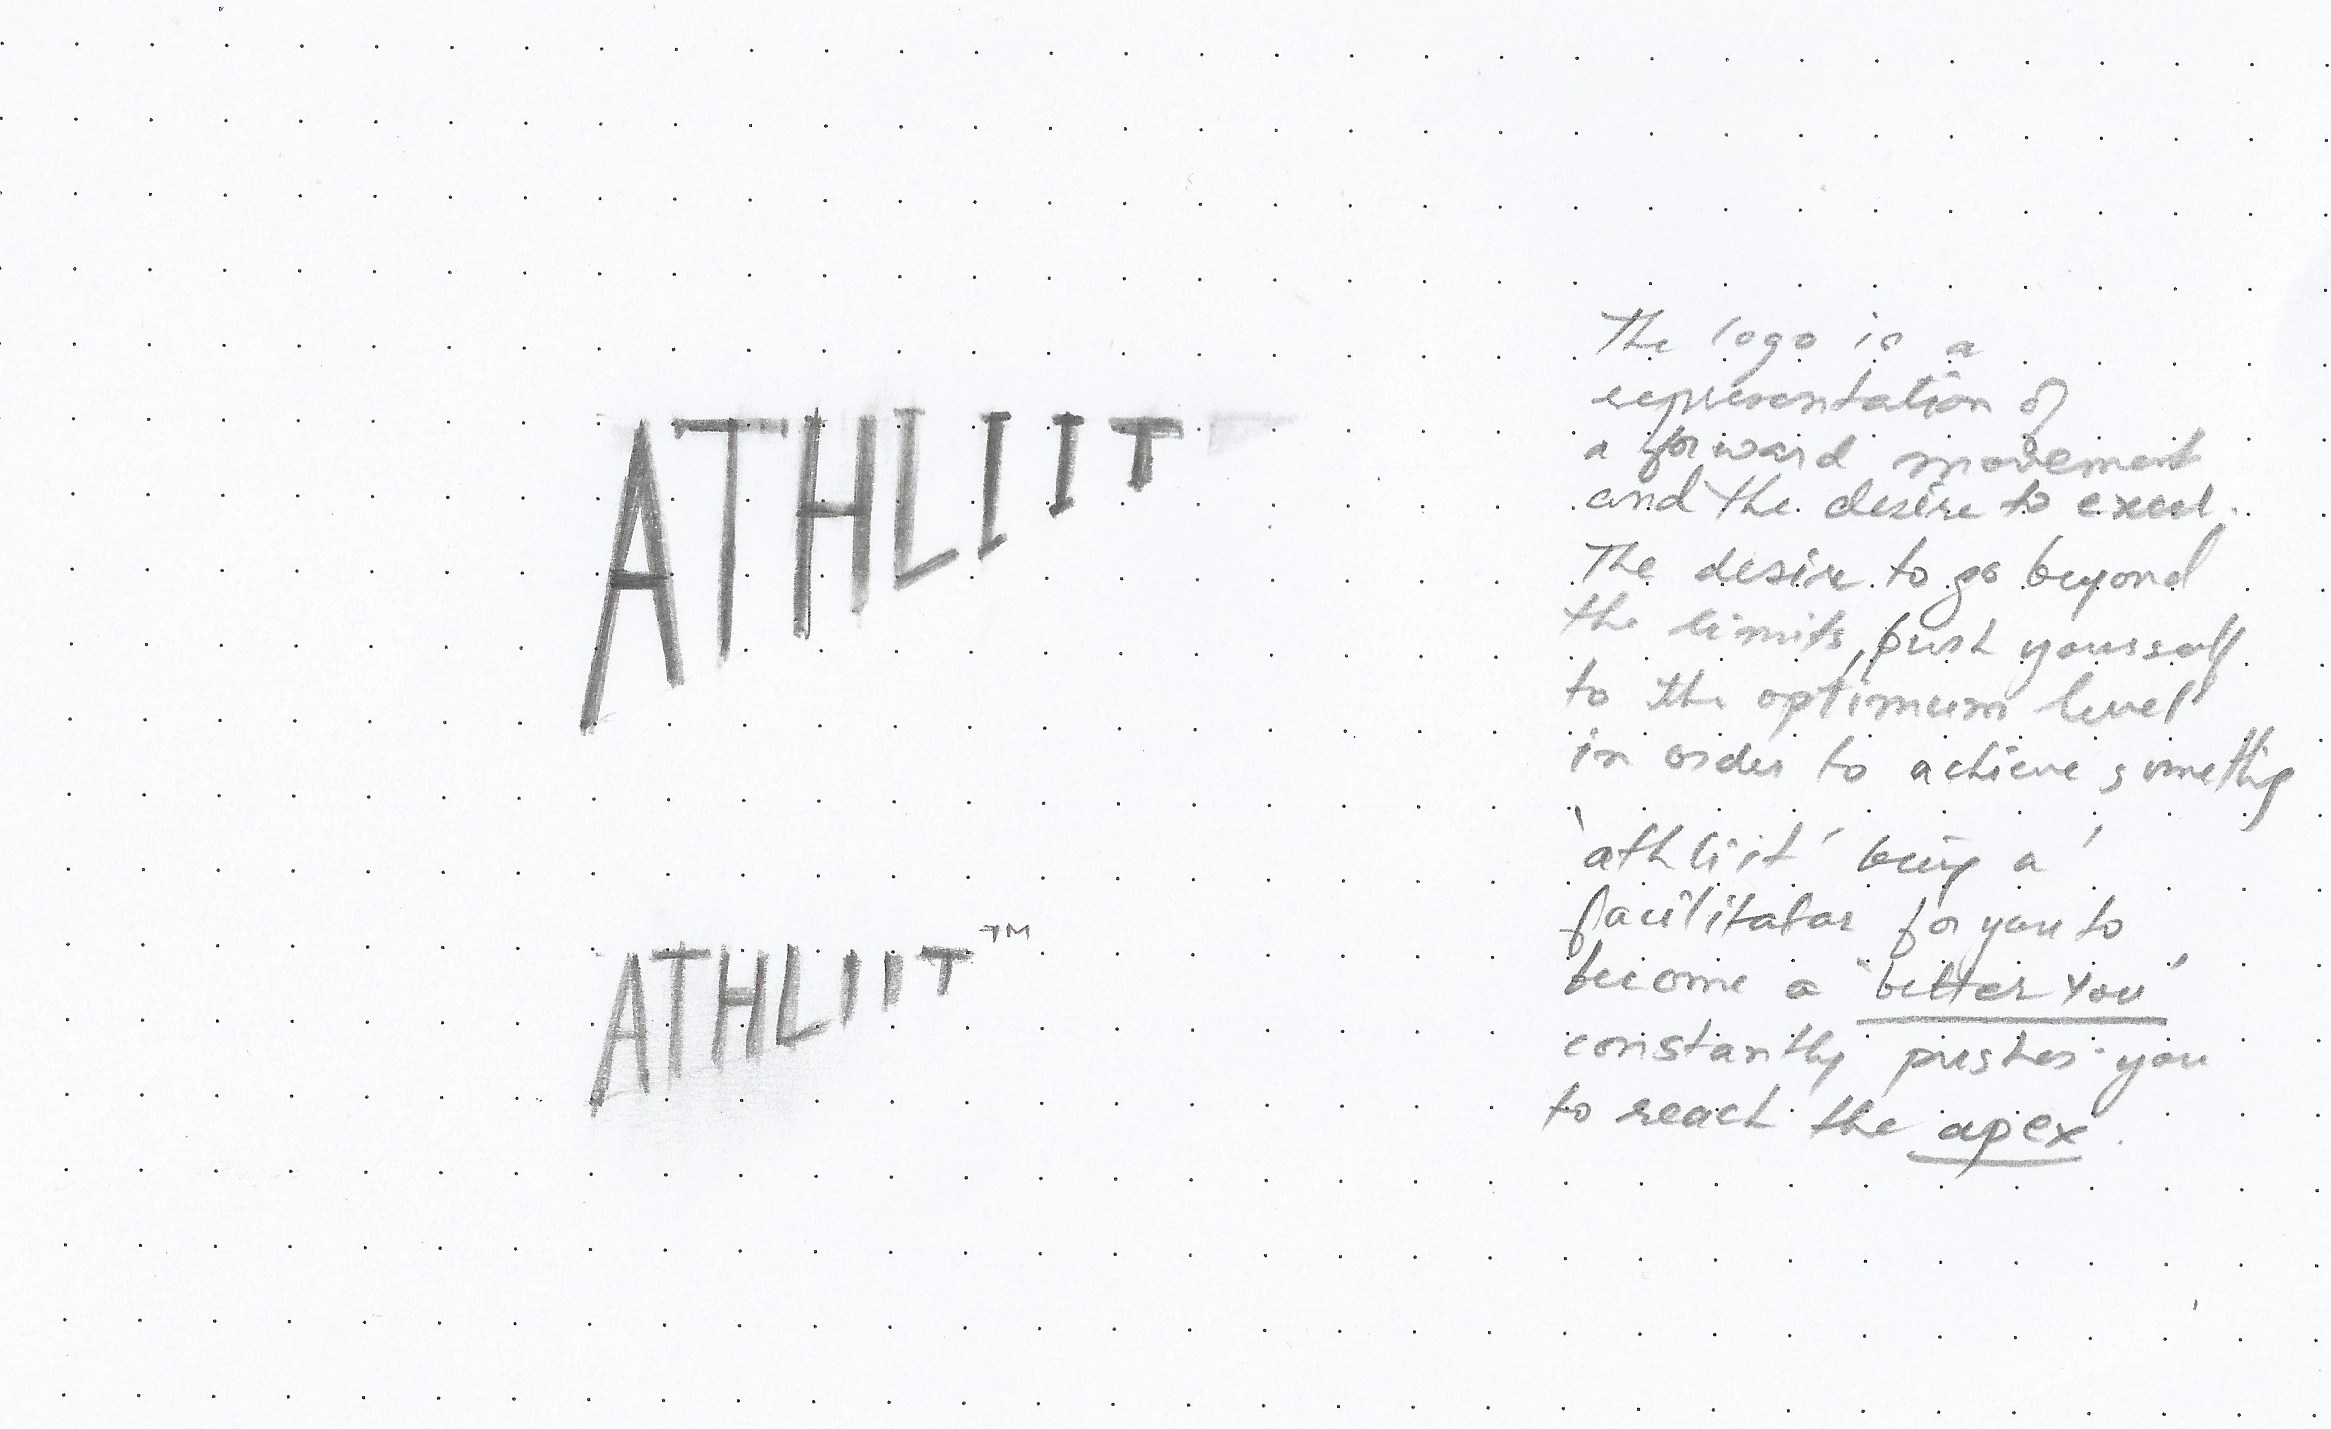 ATHLIIT
ATHLIIT™
The logo is a
representation of
a forward movement
and the desire to excel.
The desire to go beyond
the limits, push yourself
to the optimum level
in order to achieve something
'athliit' being a
facilitator for you to
become a 'better You'
constantly pushes you
to reach the apex.